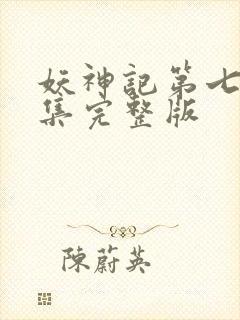 妖神記第七
集完整版
陳蔚英